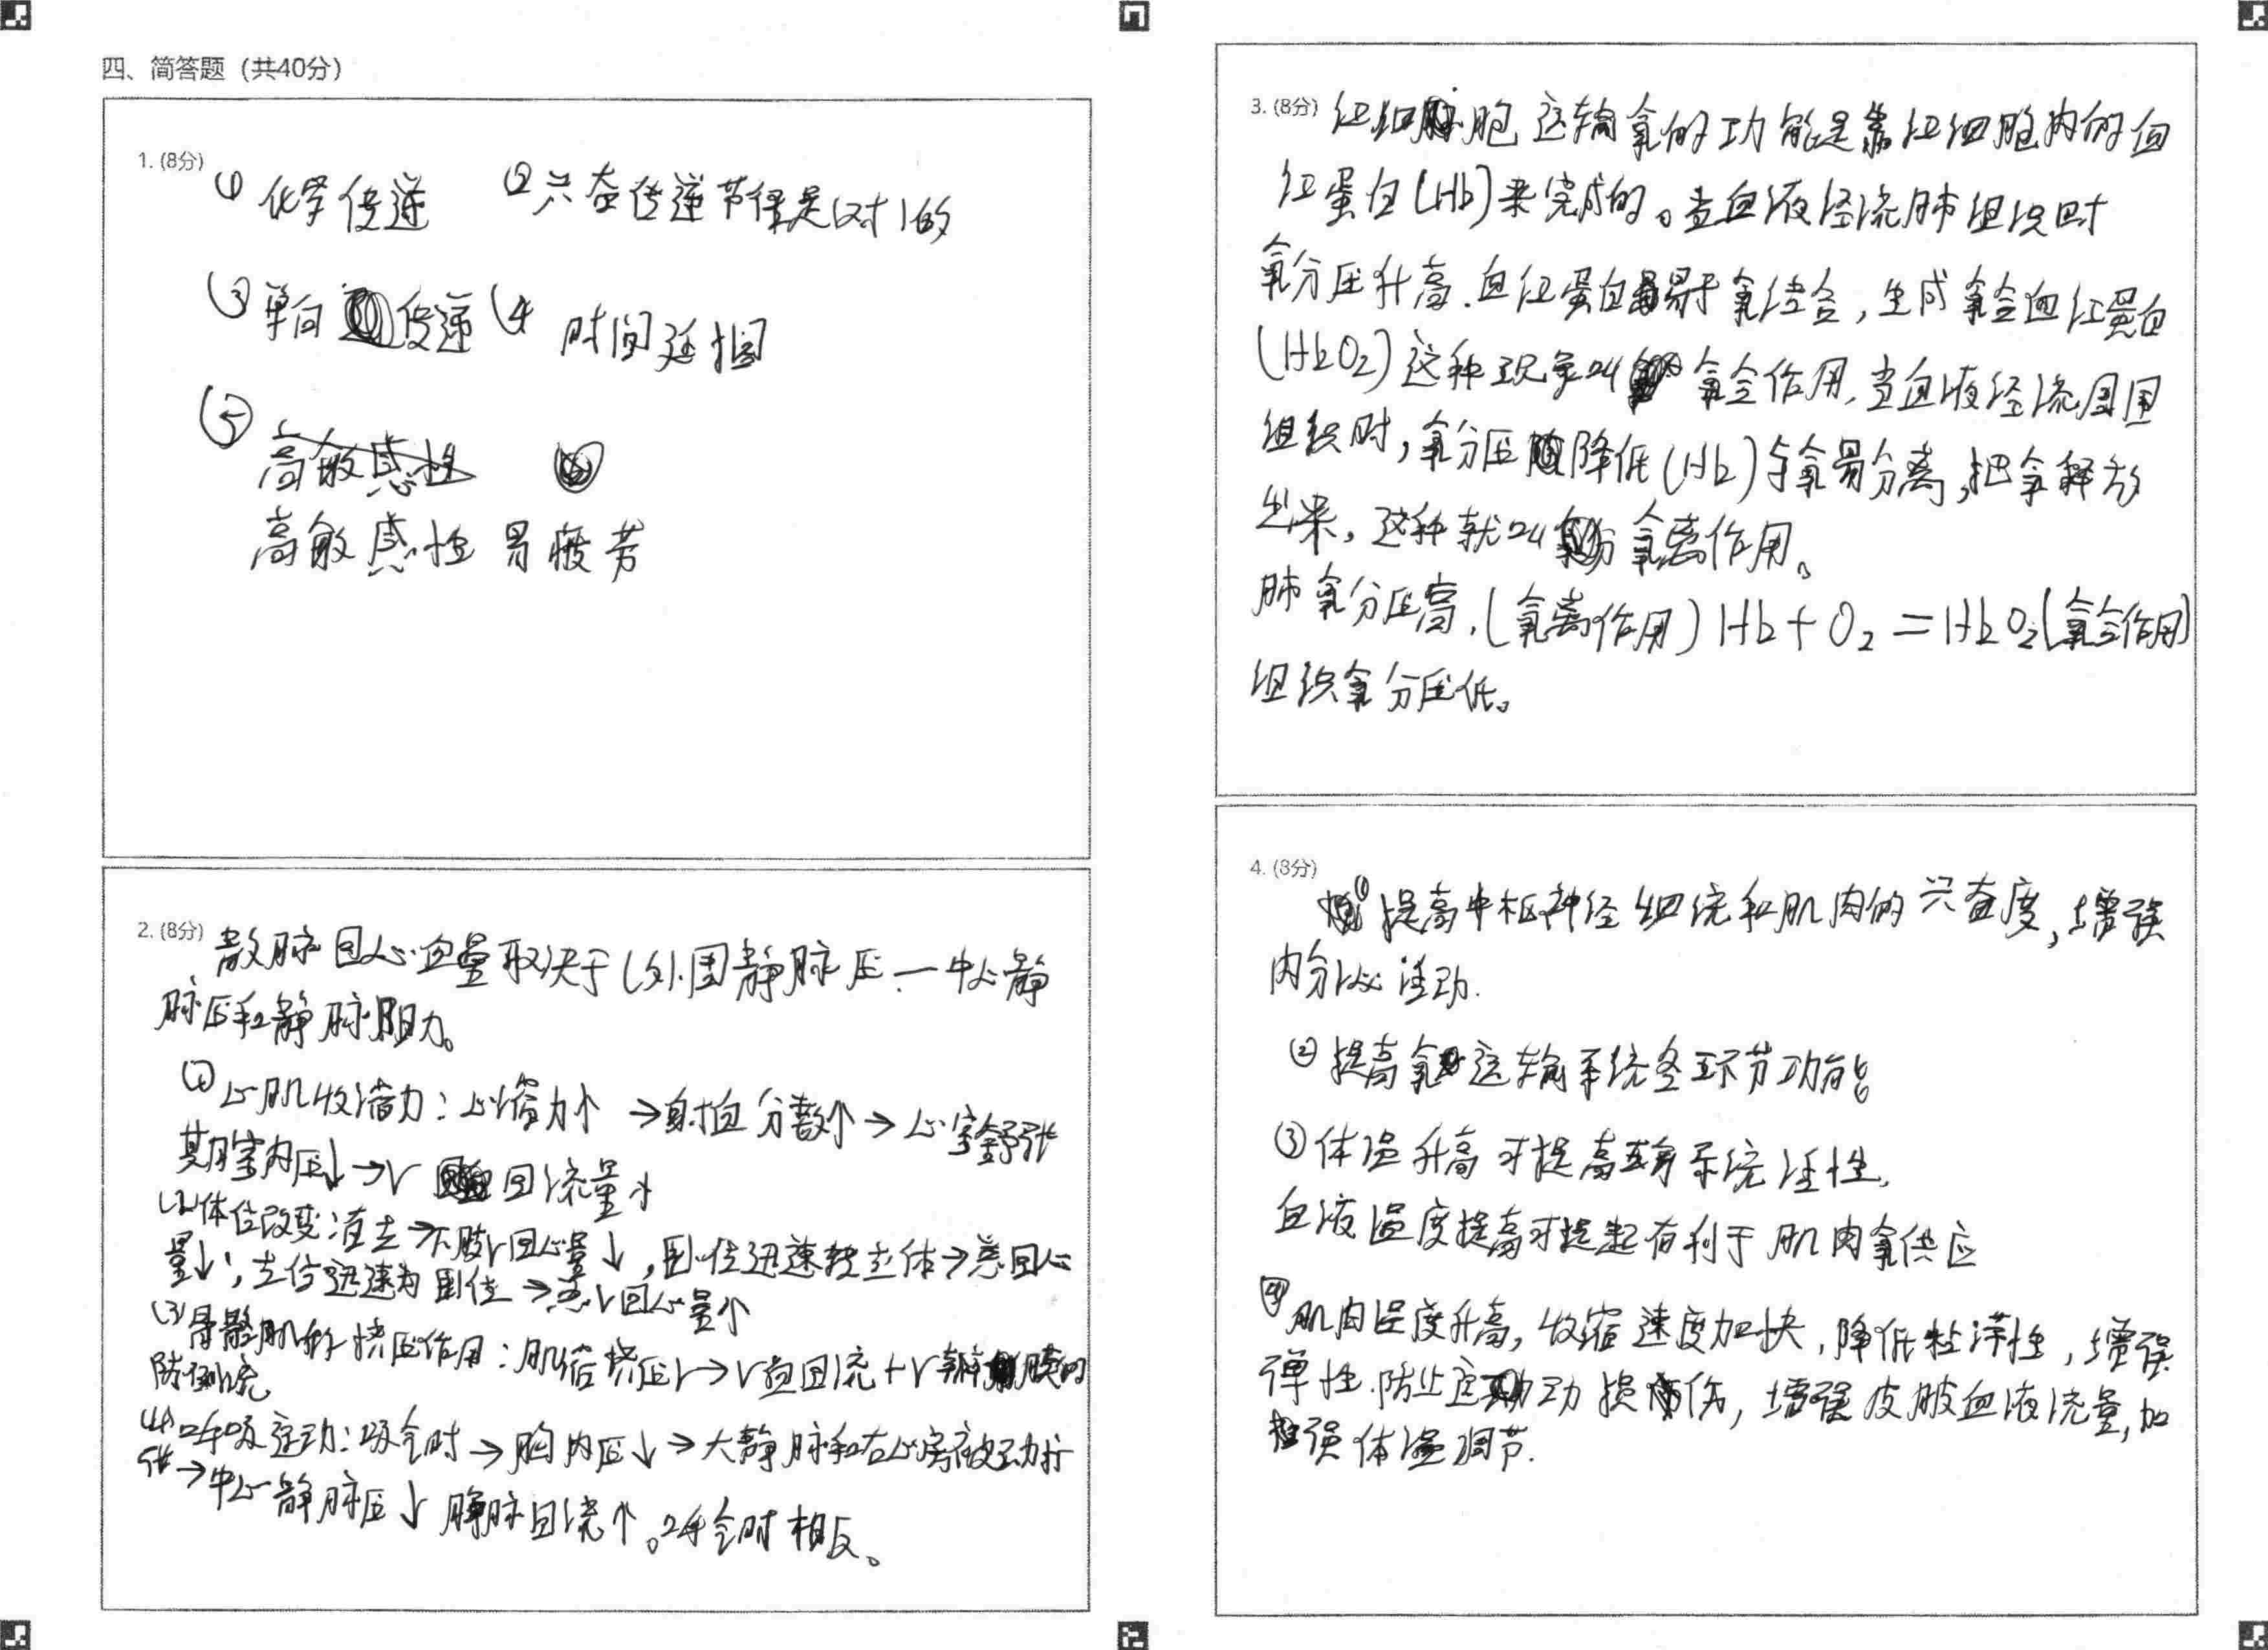 四、简答题（共40分）
1. (8分)
① 化学传递 ② 兴奋传递节律是1对1的
③ 单向传递 ④ 时间延搁
⑤
高敏感性
高敏感性 易疲劳
2. (8分) 静脉回心血量取决于(外周静脉压—中心静
脉压和静脉阻力。
(1)心肌收缩力：心缩力↑ →射血分数↑→心室舒张
期室内压↓→V 回流量↑
(2)体位改变：直立→下肢V回心量↓，卧位迅速转立体→总回心
量↓；立位迅速为卧位→总V回心量↑
(3)骨骼肌的挤压作用：肌缩挤压V→V血回流+V瓣膜的
防倒流
(4)呼吸运动：吸气时→胸内压↓→大静脉和右心房被动扩
张→中心静脉压↓ 静脉回流↑。呼气时相反。
3. (8分) 红细胞运输氧的功能是靠红细胞内的血
红蛋白(Hb)来完成的。当血液经流肺组织时
氧分压升高，血红蛋白易于氧结合，生成氧合血红蛋白
(HbO₂)这种现象叫氧合作用，当血液经流周围
组织时，氧分压降低(Hb)与氧易分离，把氧释放
出来，这种就叫氧离作用。
肺氧分压高，(氧离作用) Hb+O₂=HbO₂(氧合作用)
组织氧分压低。
4. (8分) ① 提高中枢神经细统和肌肉的兴奋度，增强
内分泌活动.
② 提高氧运输系统各环节功能
③ 体温升高可提高系统活性，
血液温度提高可提起有利于肌肉氧供应
④ 肌肉温度升高，收缩速度加快，降低粘滞性，增强
弹性.防止运动损伤，增强皮肤血液流量，加
强体温调节.